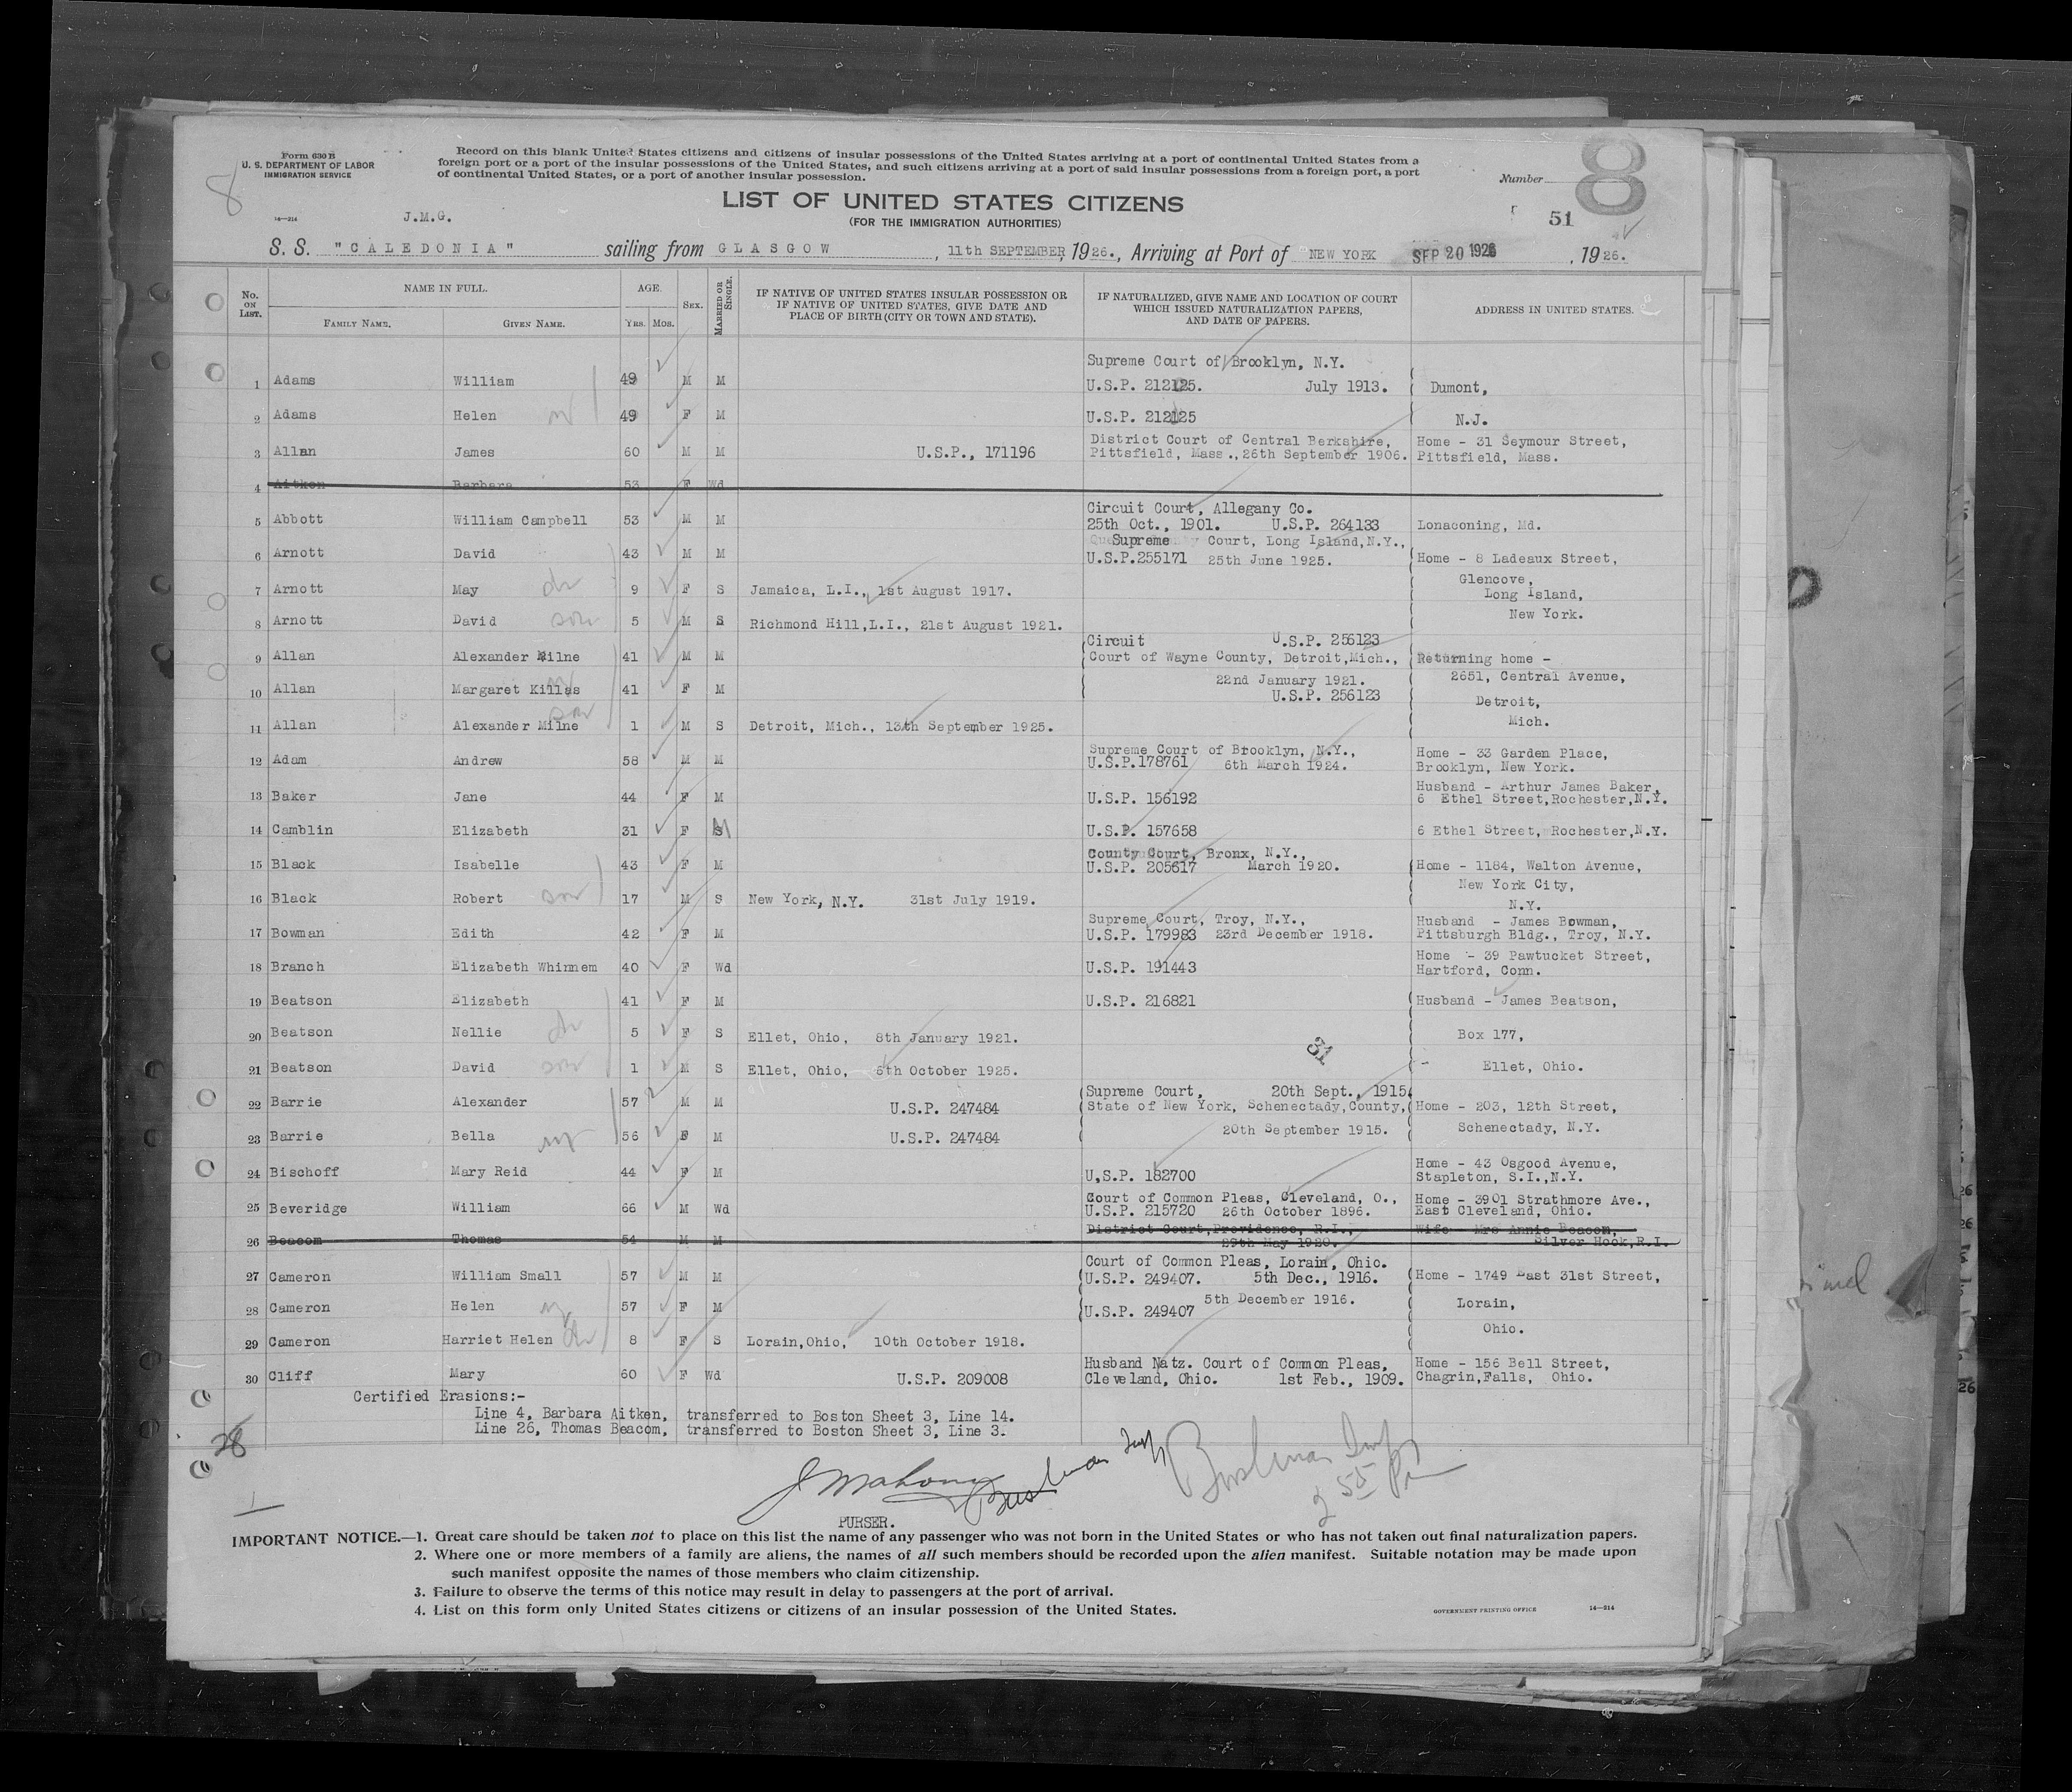 Form 630 B
U. S. DEPARTMENT OF LABOR
IMMIGRATION SERVICE
8
14—214
J.M.G.
Record on this blank United States citizens and citizens of insular possessions of the United States arriving at a port of continental United States from a
foreign port or a port of the insular possessions of the United States, and such citizens arriving at a port of said insular possessions from a foreign port, a port
of continental United States, or a port of another insular possession.
Number
8
51
LIST OF UNITED STATES CITIZENS
(FOR THE IMMIGRATION AUTHORITIES)
S. S. "CALEDONIA" sailing from GLASGOW, 11th SEPTEMBER, 1926., Arriving at Port of NEW YORK SEP 20 1926, 1926.
No. ON LIST. NAME IN FULL. AGE. SEX. MARRIED OR SINGLE. IF NATIVE OF UNITED STATES INSULAR POSSESSION OR IF NATIVE OF UNITED STATES, GIVE DATE AND PLACE OF BIRTH (CITY OR TOWN AND STATE). IF NATURALIZED, GIVE NAME AND LOCATION OF COURT WHICH ISSUED NATURALIZATION PAPERS, AND DATE OF PAPERS. ADDRESS IN UNITED STATES.
FAMILY NAME. GIVEN NAME. YRS. MOS.
Supreme Court of Brooklyn, N.Y.
1 Adams William 49 M M U.S.P. 212125. July 1913. Dumont,
2 Adams Helen 49 F M U.S.P. 212125 N.J.
District Court of Central Berkshire, Home - 31 Seymour Street,
3 Allan James 60 M M U.S.P., 171196 Pittsfield, Mass., 26th September 1906. Pittsfield, Mass.
4 Aitken Barbara 53 F Wd
Circuit Court, Allegany Co.
5 Abbott William Campbell 53 M M 25th Oct., 1901. U.S.P. 264133 Lonaconing, Md.
Supreme Court, Long Island, N.Y.,
6 Arnott David 43 M M U.S.P.255171 25th June 1925. Home - 8 Ladeaux Street,
Glencove,
7 Arnott May dr 9 F S Jamaica, L.I., 1st August 1917. Long Island,
New York.
8 Arnott David son 5 M S Richmond Hill, L.I., 21st August 1921.
Circuit U.S.P. 256123
9 Allan Alexander Milne 41 M M Court of Wayne County, Detroit, Mich., Returning home -
22nd January 1921. 2651, Central Avenue,
10 Allan Margaret Killas 41 F M U.S.P. 256123 Detroit,
11 Allan Alexander Milne son 1 M S Detroit, Mich., 13th September 1925. Mich.
Supreme Court of Brooklyn, N.Y., Home - 33 Garden Place,
12 Adam Andrew 58 M M U.S.P.178761 6th March 1924. Brooklyn, New York.
Husband - Arthur James Baker,
13 Baker Jane 44 F M U.S.P. 156192 6 Ethel Street, Rochester, N.Y.
14 Camblin Elizabeth 31 F M U.S.P. 157658 6 Ethel Street, Rochester, N.Y.
County Court, Bronx, N.Y.,
15 Black Isabelle 43 F M U.S.P. 205617 March 1920. Home - 1184, Walton Avenue,
New York City,
16 Black Robert son 17 M S New York, N.Y. 31st July 1919. N.Y.
Supreme Court, Troy, N.Y., Husband - James Bowman,
17 Bowman Edith 42 F M U.S.P. 179983 23rd December 1918. Pittsburgh Bldg., Troy, N.Y.
Home - 39 Pawtucket Street,
18 Branch Elizabeth Whinnem 40 F Wd U.S.P. 191443 Hartford, Conn.
19 Beatson Elizabeth 41 F M U.S.P. 216821 Husband - James Beatson,
20 Beatson Nellie dr 5 F S Ellet, Ohio, 8th January 1921. Box 177,
31
21 Beatson David son 1 M S Ellet, Ohio, 6th October 1925. Ellet, Ohio.
Supreme Court, 20th Sept., 1915
22 Barrie Alexander 57 M M U.S.P. 247484 State of New York, Schenectady, County, Home - 203, 12th Street,
23 Barrie Bella 56 F M U.S.P. 247484 20th September 1915. Schenectady, N.Y.
Home - 43 Osgood Avenue,
24 Bischoff Mary Reid 44 F M U.S.P. 182700 Stapleton, S.I., N.Y.
Court of Common Pleas, Cleveland, O., Home - 3901 Strathmore Ave.,
25 Beveridge William 66 M Wd U.S.P. 215720 26th October 1896. East Cleveland, Ohio.
District Court, Providence, R.I., Wife - Mrs Annie Beacom,
26 Beacom Thomas 54 M M 29th May 1920. Silver Hook, R.I.
Court of Common Pleas, Lorain, Ohio.
27 Cameron William Small 57 M M U.S.P. 249407. 5th Dec., 1916. Home - 1749 East 31st Street,
5th December 1916.
28 Cameron Helen 57 F M U.S.P. 249407 Lorain,
Ohio.
29 Cameron Harriet Helen dr 8 F S Lorain, Ohio, 10th October 1918.
Husband Natz. Court of Common Pleas, Home - 156 Bell Street,
30 Cliff Mary 60 F Wd U.S.P. 209008 Cleveland, Ohio. 1st Feb., 1909. Chagrin, Falls, Ohio.
Certified Erasions:-
Line 4, Barbara Aitken, transferred to Boston Sheet 3, Line 14.
Line 26, Thomas Beacom, transferred to Boston Sheet 3, Line 3.
28
J Mahony
PURSER.
2 55 Pm
IMPORTANT NOTICE.—1. Great care should be taken not to place on this list the name of any passenger who was not born in the United States or who has not taken out final naturalization papers.
2. Where one or more members of a family are aliens, the names of all such members should be recorded upon the alien manifest. Suitable notation may be made upon
such manifest opposite the names of those members who claim citizenship.
3. Failure to observe the terms of this notice may result in delay to passengers at the port of arrival.
4. List on this form only United States citizens or citizens of an insular possession of the United States.
GOVERNMENT PRINTING OFFICE 14—214